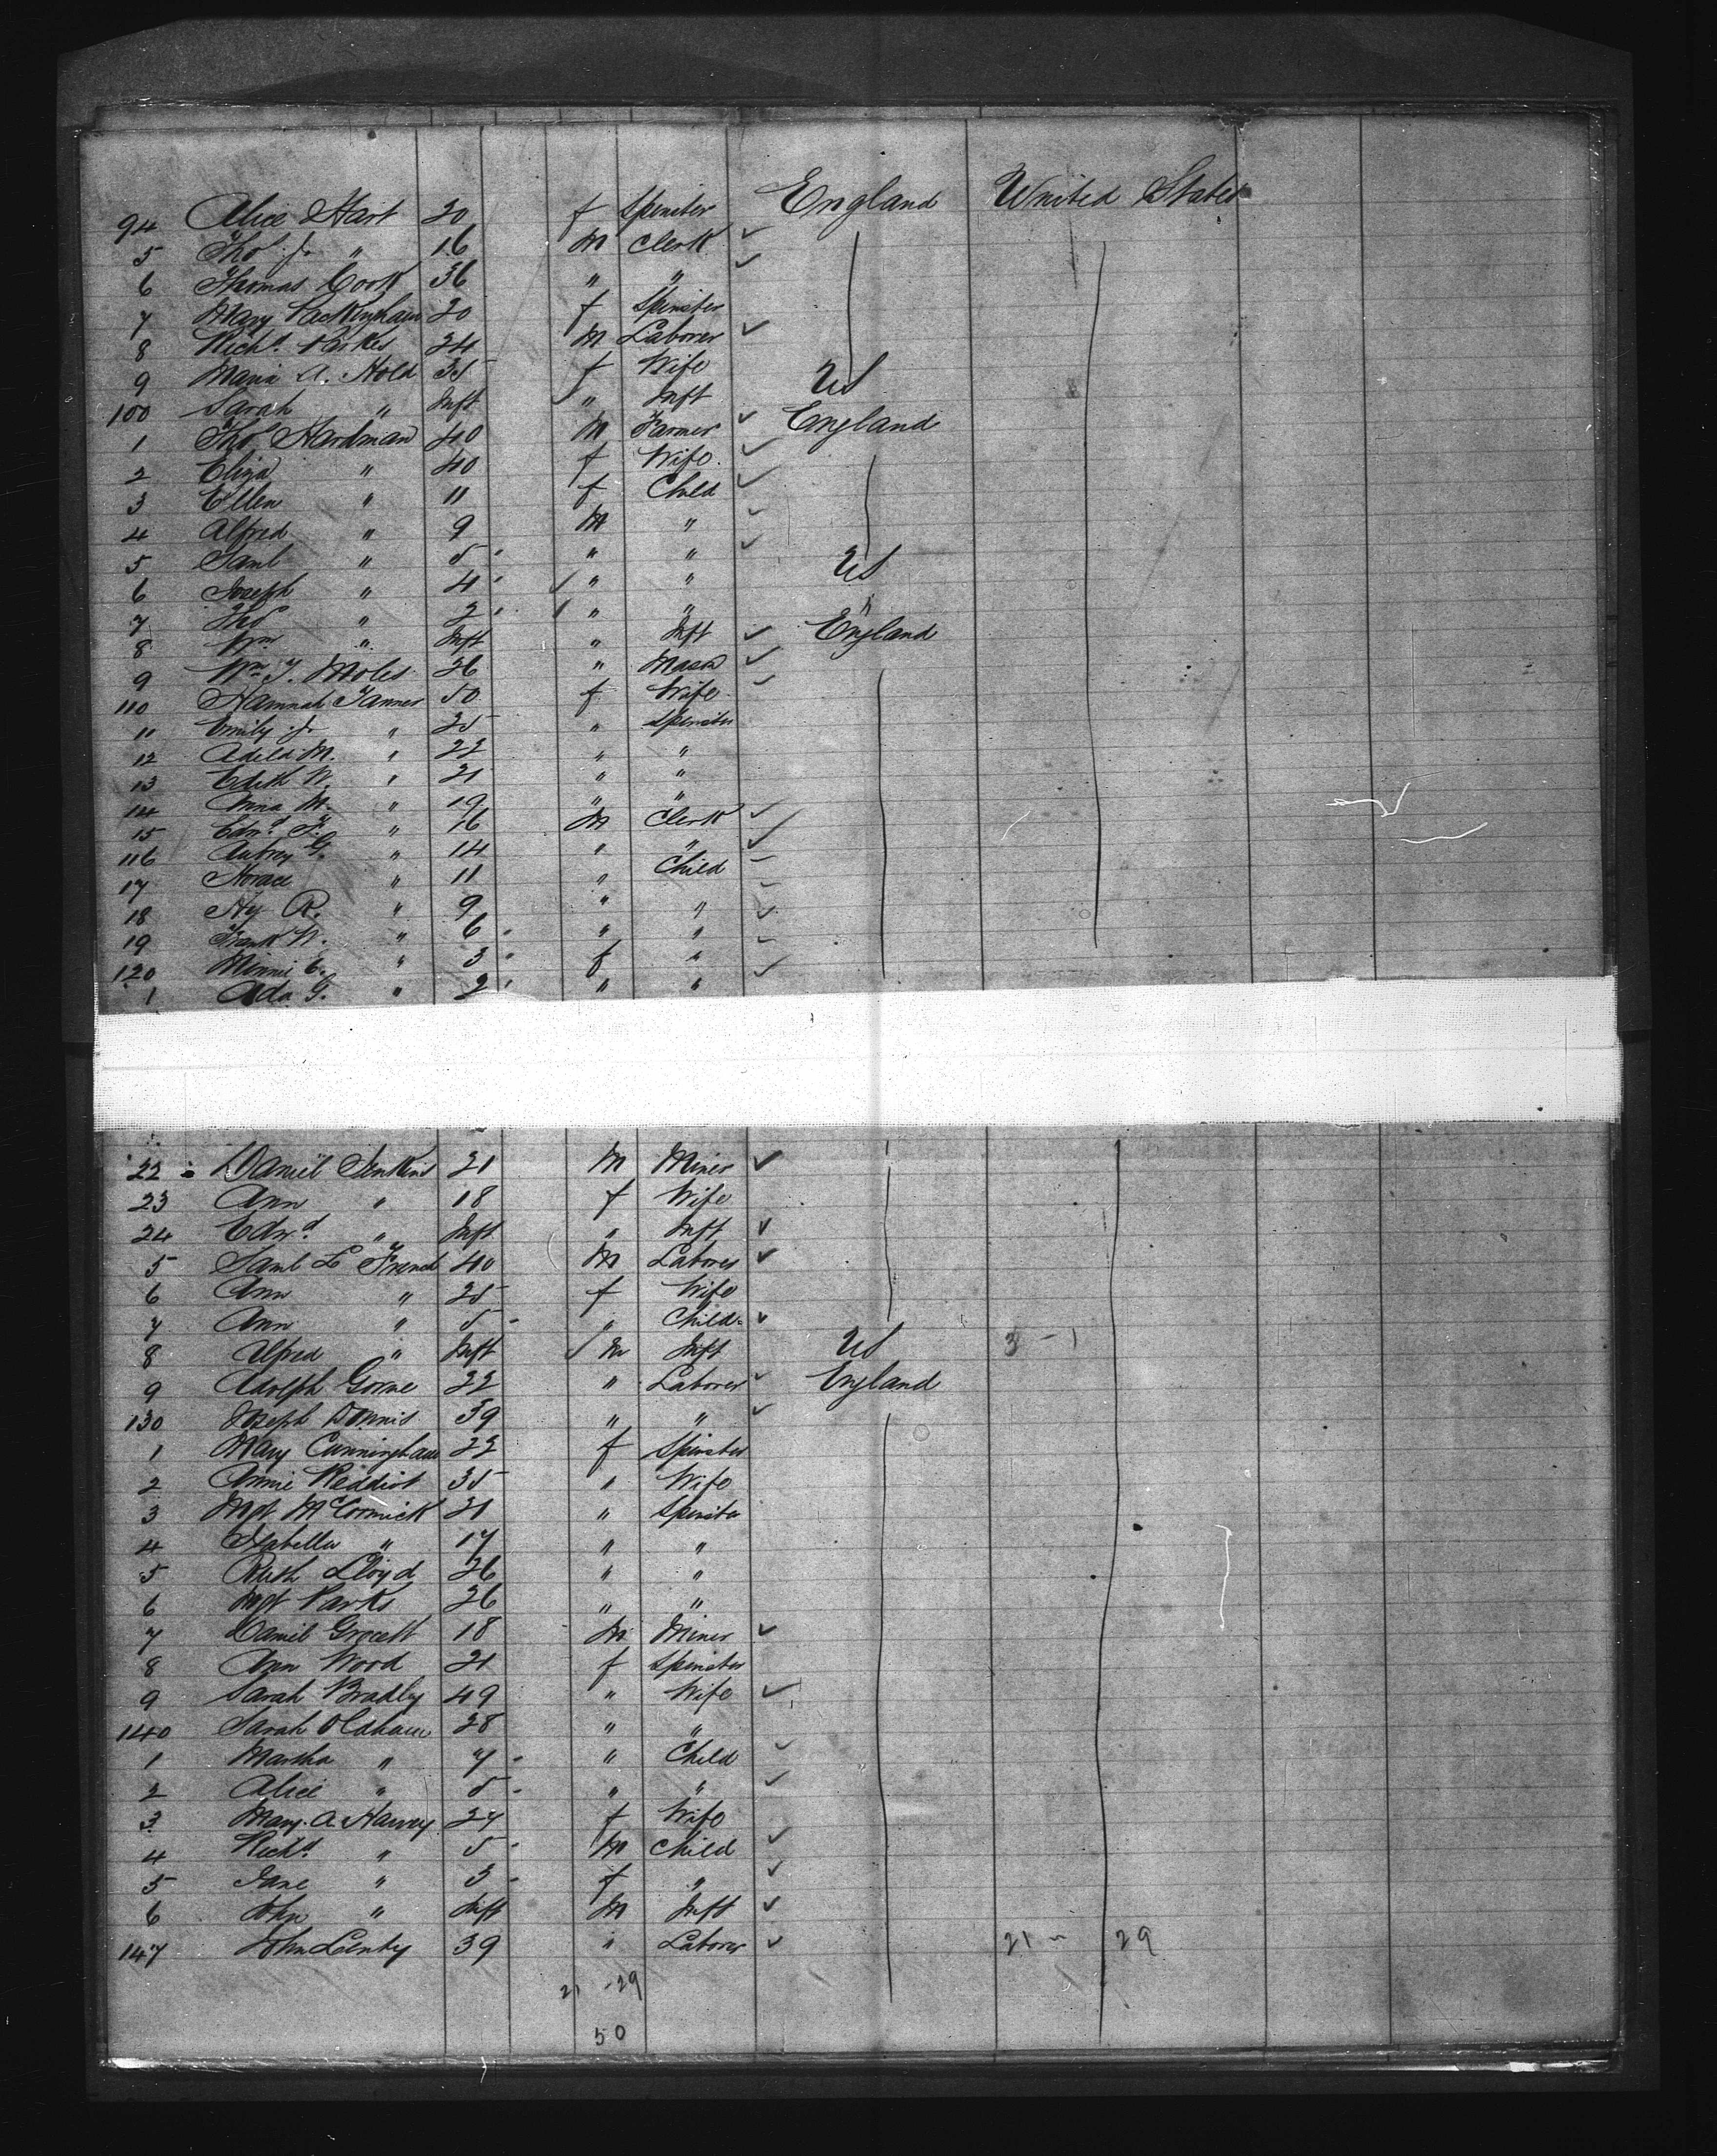 94 Alice Hart 20 f Spinster England United States
5 Thos J. " 16 M Clerk
6 Thomas Cook 36 " "
7 Mary Packingham 20 f Spinster
8 Richd Parkes 24 M Laborer
9 Maria A. Hold 35 f Wife
100 Sarah " Inft " Inft US
1 Thos Hardman 40 M Farmer England
2 Eliza " 40 f Wife
3 Ellen " 11 f Child
4 Alfred " 9 M "
5 Saml " 5 " "
6 Joseph " 4 " " US
7 Thos " 2 " " "
8 Wm " Inft " Inft England
9 Wm T. Moles 26 " Mason
110 Hannah Tanner 50 f Wife
11 Emily J. " 25 " Spinster
12 Adela M. " 22 " "
13 Edith W. " 21 " "
14 Anna M. " 19 " "
15 Edwd F. " 16 M Clerk
116 Aubrey G. " 14 " "
17 Horace " 11 " Child
18 Hy R. " 9 " "
19 Frank W. " 6 " "
120 Minnie E. " 3 f "
1 Ada G. " 2 " "
22 Daniel Jenkins 21 M Miner
23 Ann " 18 f Wife
24 Edwd " Inft " Inft
5 Saml L French 40 M Laborer
6 Ann " 25 f Wife
7 Ann " 5 " Child
8 Alfred " Inft M Inft US 3 - 1
9 Adolph Gorne 22 " Laborer England
130 Joseph Dennis 59 " "
1 Mary Cunningham 22 f Spinster
2 Annie Reddiot 35 " Wife
3 Mgt McCormick 21 " Spinster
4 Isabella " 17 " "
5 Ruth Lloyd 26 " "
6 Mgt Parks 26 " "
7 Daniel 18 M Miner
8 Ann Wood 21 f Spinster
9 Sarah Bradley 49 " Wife
140 Sarah Oldham 28 " "
1 Martha " 7 " Child
2 Alice " 5 " "
3 Mary A. Harvey 27 f Wife
4 Richd " 5 M Child
5 Jane " 3 f "
6 John " Inft M Inft
147 John Lenty 39 " Laborer 21 - 29
21 - 29
50